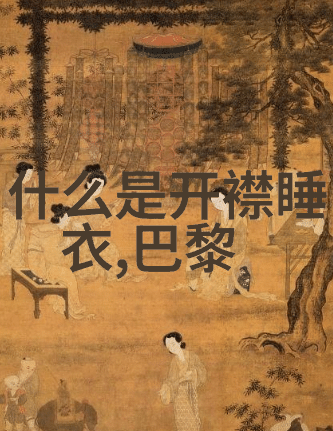 什么是开襟睡
衣,巴黎